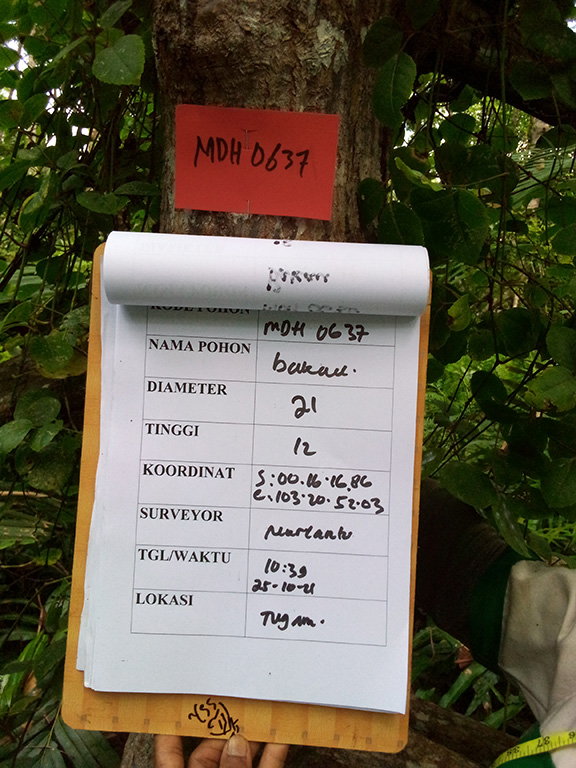 MDH 0637
KODE POHON
MDH 0637
NAMA POHON
bakau.
DIAMETER
21
TINGGI
12
KOORDINAT
S:00.16.16.86
E.103.20.52.03
SURVEYOR
TGL/WAKTU
10:39
25-10-21
LOKASI